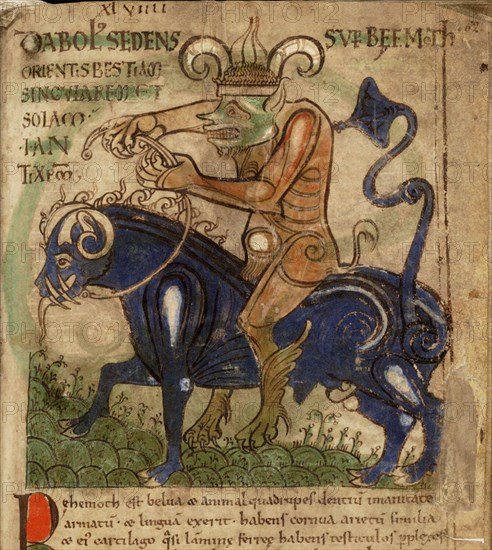 XLVIIII
DIABOL' SEDENS SVP BEEMOTH
ORIENTIS BESTIAM
SINGVLAREM ET
SOLAM
·I·AN
TIXPM·
Behemoth est belua & animal quadrupes dentiũ inmanitate
armatũ · & lingua exerit · habens cornua arietũ similia
& ei' cartilago q̃si lamine ferreę habens testiculos pplexos